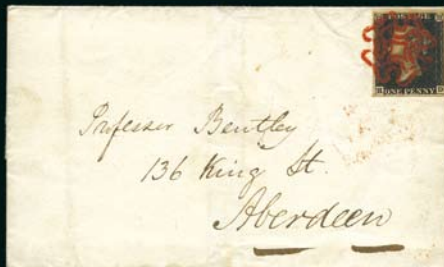 POSTAGE
ONE PENNY
Professor Bentley
136 King St.
Aberdeen